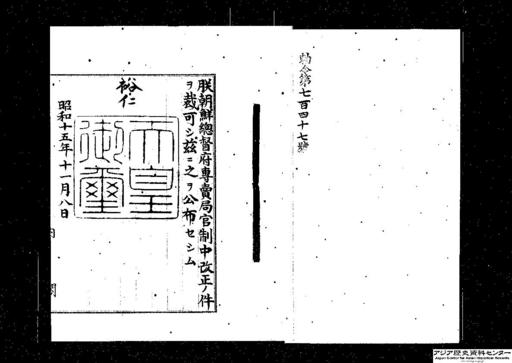 勅令第七百四十七號
朕朝鮮總督府專賣局官制中改正ノ件
ヲ裁可シ茲ニ之ヲ公布セシム
裕仁
天皇御璽
昭和十五年十一月八日
内閣
アジア歴史資料センター
Japan Center for Asian Historical Records